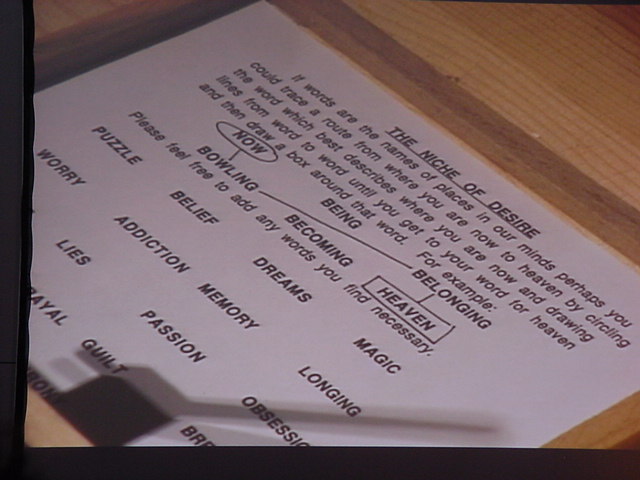 THE NICHE OF DESIRE
If words are the names of places in our minds perhaps you
could trace a route from where you are now to heaven by circling
the word which best describes where you are now and drawing
lines from word to word until you get to your word for heaven
and then draw a box around that word. For example:
NOW
BEING
BOWLING BELONGING
BECOMING
HEAVEN
Please feel free to add any words you find necessary.
PUZZLE BELIEF DREAMS MAGIC
WORRY ADDICTION MEMORY LONGING
LIES PASSION OBSESSIO
RAYAL GUILT BRE